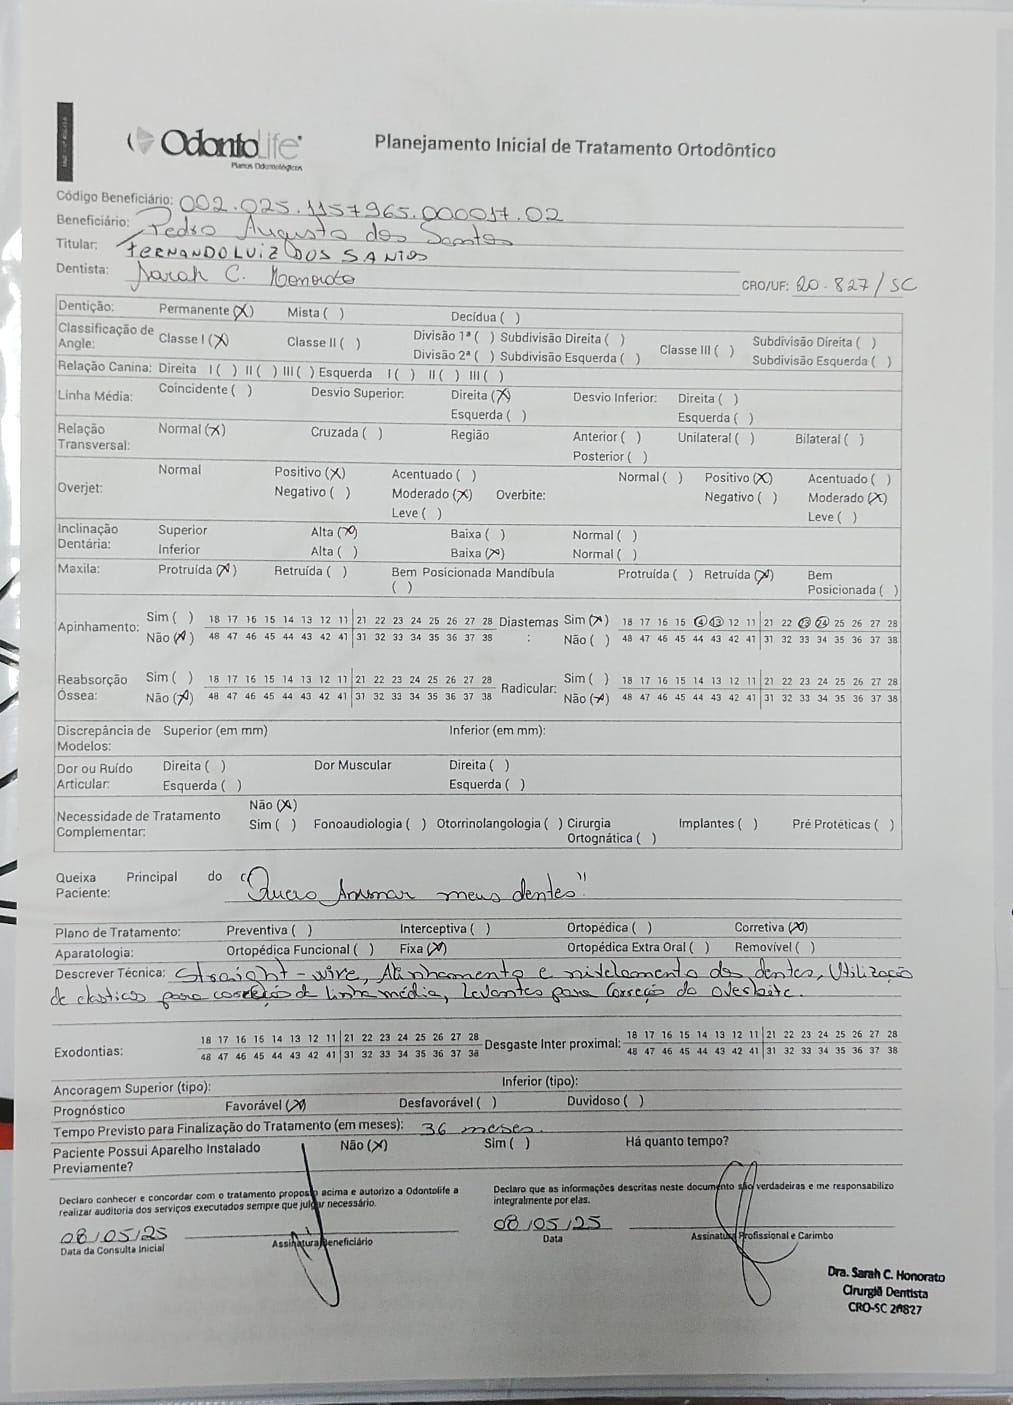 OdontoLife
Planos Odontológicos
Planejamento Inicial de Tratamento Ortodôntico
Código Beneficiário: 002.025.1157965.000017.02
Beneficiário: Pedro Augusto dos Santos
Titular: FERNANDO LUIZ DOS SANTOS
Dentista: Sarah C. Honorato CRO/UF: 20.827/SC
Dentição: Permanente (X) Mista ( ) Decídua ( )
Classificação de Angle: Classe I (X) Classe II ( ) Divisão 1ª ( ) Subdivisão Direita ( ) Classe III ( ) Subdivisão Direita ( )
Divisão 2ª ( ) Subdivisão Esquerda ( ) Subdivisão Esquerda ( )
Relação Canina: Direita I ( ) II ( ) III ( ) Esquerda I ( ) II ( ) III ( )
Linha Média: Coincidente ( ) Desvio Superior: Direita (X) Desvio Inferior: Direita ( )
Esquerda ( ) Esquerda ( )
Relação Transversal: Normal (X) Cruzada ( ) Região Anterior ( ) Unilateral ( ) Bilateral ( )
Posterior ( )
Normal Positivo (X) Acentuado ( ) Normal ( ) Positivo (X) Acentuado ( )
Overjet: Negativo ( ) Moderado (X) Overbite: Negativo ( ) Moderado (X)
Leve ( ) Leve ( )
Inclinação Dentária: Superior Alta (X) Baixa ( ) Normal ( )
Inferior Alta ( ) Baixa (X) Normal ( )
Maxila: Protruída (X) Retruída ( ) Bem Posicionada ( ) Mandíbula Protruída ( ) Retruída (X) Bem Posicionada ( )
Apinhamento: Sim ( ) 18 17 16 15 14 13 12 11 21 22 23 24 25 26 27 28 Diastemas: Sim (X) 18 17 16 15 14 13 12 11 21 22 23 24 25 26 27 28
Não (X) 48 47 46 45 44 43 42 41 31 32 33 34 35 36 37 38 Não ( ) 48 47 46 45 44 43 42 41 31 32 33 34 35 36 37 38
Reabsorção Óssea: Sim ( ) 18 17 16 15 14 13 12 11 21 22 23 24 25 26 27 28 Radicular: Sim ( ) 18 17 16 15 14 13 12 11 21 22 23 24 25 26 27 28
Não (X) 48 47 46 45 44 43 42 41 31 32 33 34 35 36 37 38 Não (X) 48 47 46 45 44 43 42 41 31 32 33 34 35 36 37 38
Discrepância de Modelos: Superior (em mm) Inferior (em mm):
Dor ou Ruído Articular: Direita ( ) Dor Muscular Direita ( )
Esquerda ( ) Esquerda ( )
Necessidade de Tratamento Complementar: Não (X)
Sim ( ) Fonoaudiologia ( ) Otorrinolangologia ( ) Cirurgia Ortognática ( ) Implantes ( ) Pré Protéticas ( )
Queixa Principal do Paciente: "Quero Arrumar meus dentes"
Plano de Tratamento: Preventiva ( ) Interceptiva ( ) Ortopédica ( ) Corretiva (X)
Aparatologia: Ortopédica Funcional ( ) Fixa (X) Ortopédica Extra Oral ( ) Removível ( )
Descrever Técnica: Straight-wire, Alinhamento e nivelamento dos dentes, Utilização
de elasticos para correção de linha média, Levantes para Correção do overbite.
Exodontias: 18 17 16 15 14 13 12 11 21 22 23 24 25 26 27 28 Desgaste Inter proximal: 18 17 16 15 14 13 12 11 21 22 23 24 25 26 27 28
48 47 46 45 44 43 42 41 31 32 33 34 35 36 37 38 48 47 46 45 44 43 42 41 31 32 33 34 35 36 37 38
Ancoragem Superior (tipo): Inferior (tipo):
Prognóstico Favorável (X) Desfavorável ( ) Duvidoso ( )
Tempo Previsto para Finalização do Tratamento (em meses): 36 meses.
Paciente Possui Aparelho Instalado Previamente? Não (X) Sim ( ) Há quanto tempo?
Declaro conhecer e concordar com o tratamento proposto acima e autorizo a Odontolife a
realizar auditoria dos serviços executados sempre que julgar necessário.
Declaro que as informações descritas neste documento são verdadeiras e me responsabilizo
integralmente por elas.
08/05/25
Data da Consulta Inicial
Assinatura Beneficiário
08/05/25
Data
Assinatura Profissional e Carimbo
Dra. Sarah C. Honorato
Cirurgiã Dentista
CRO-SC 20827